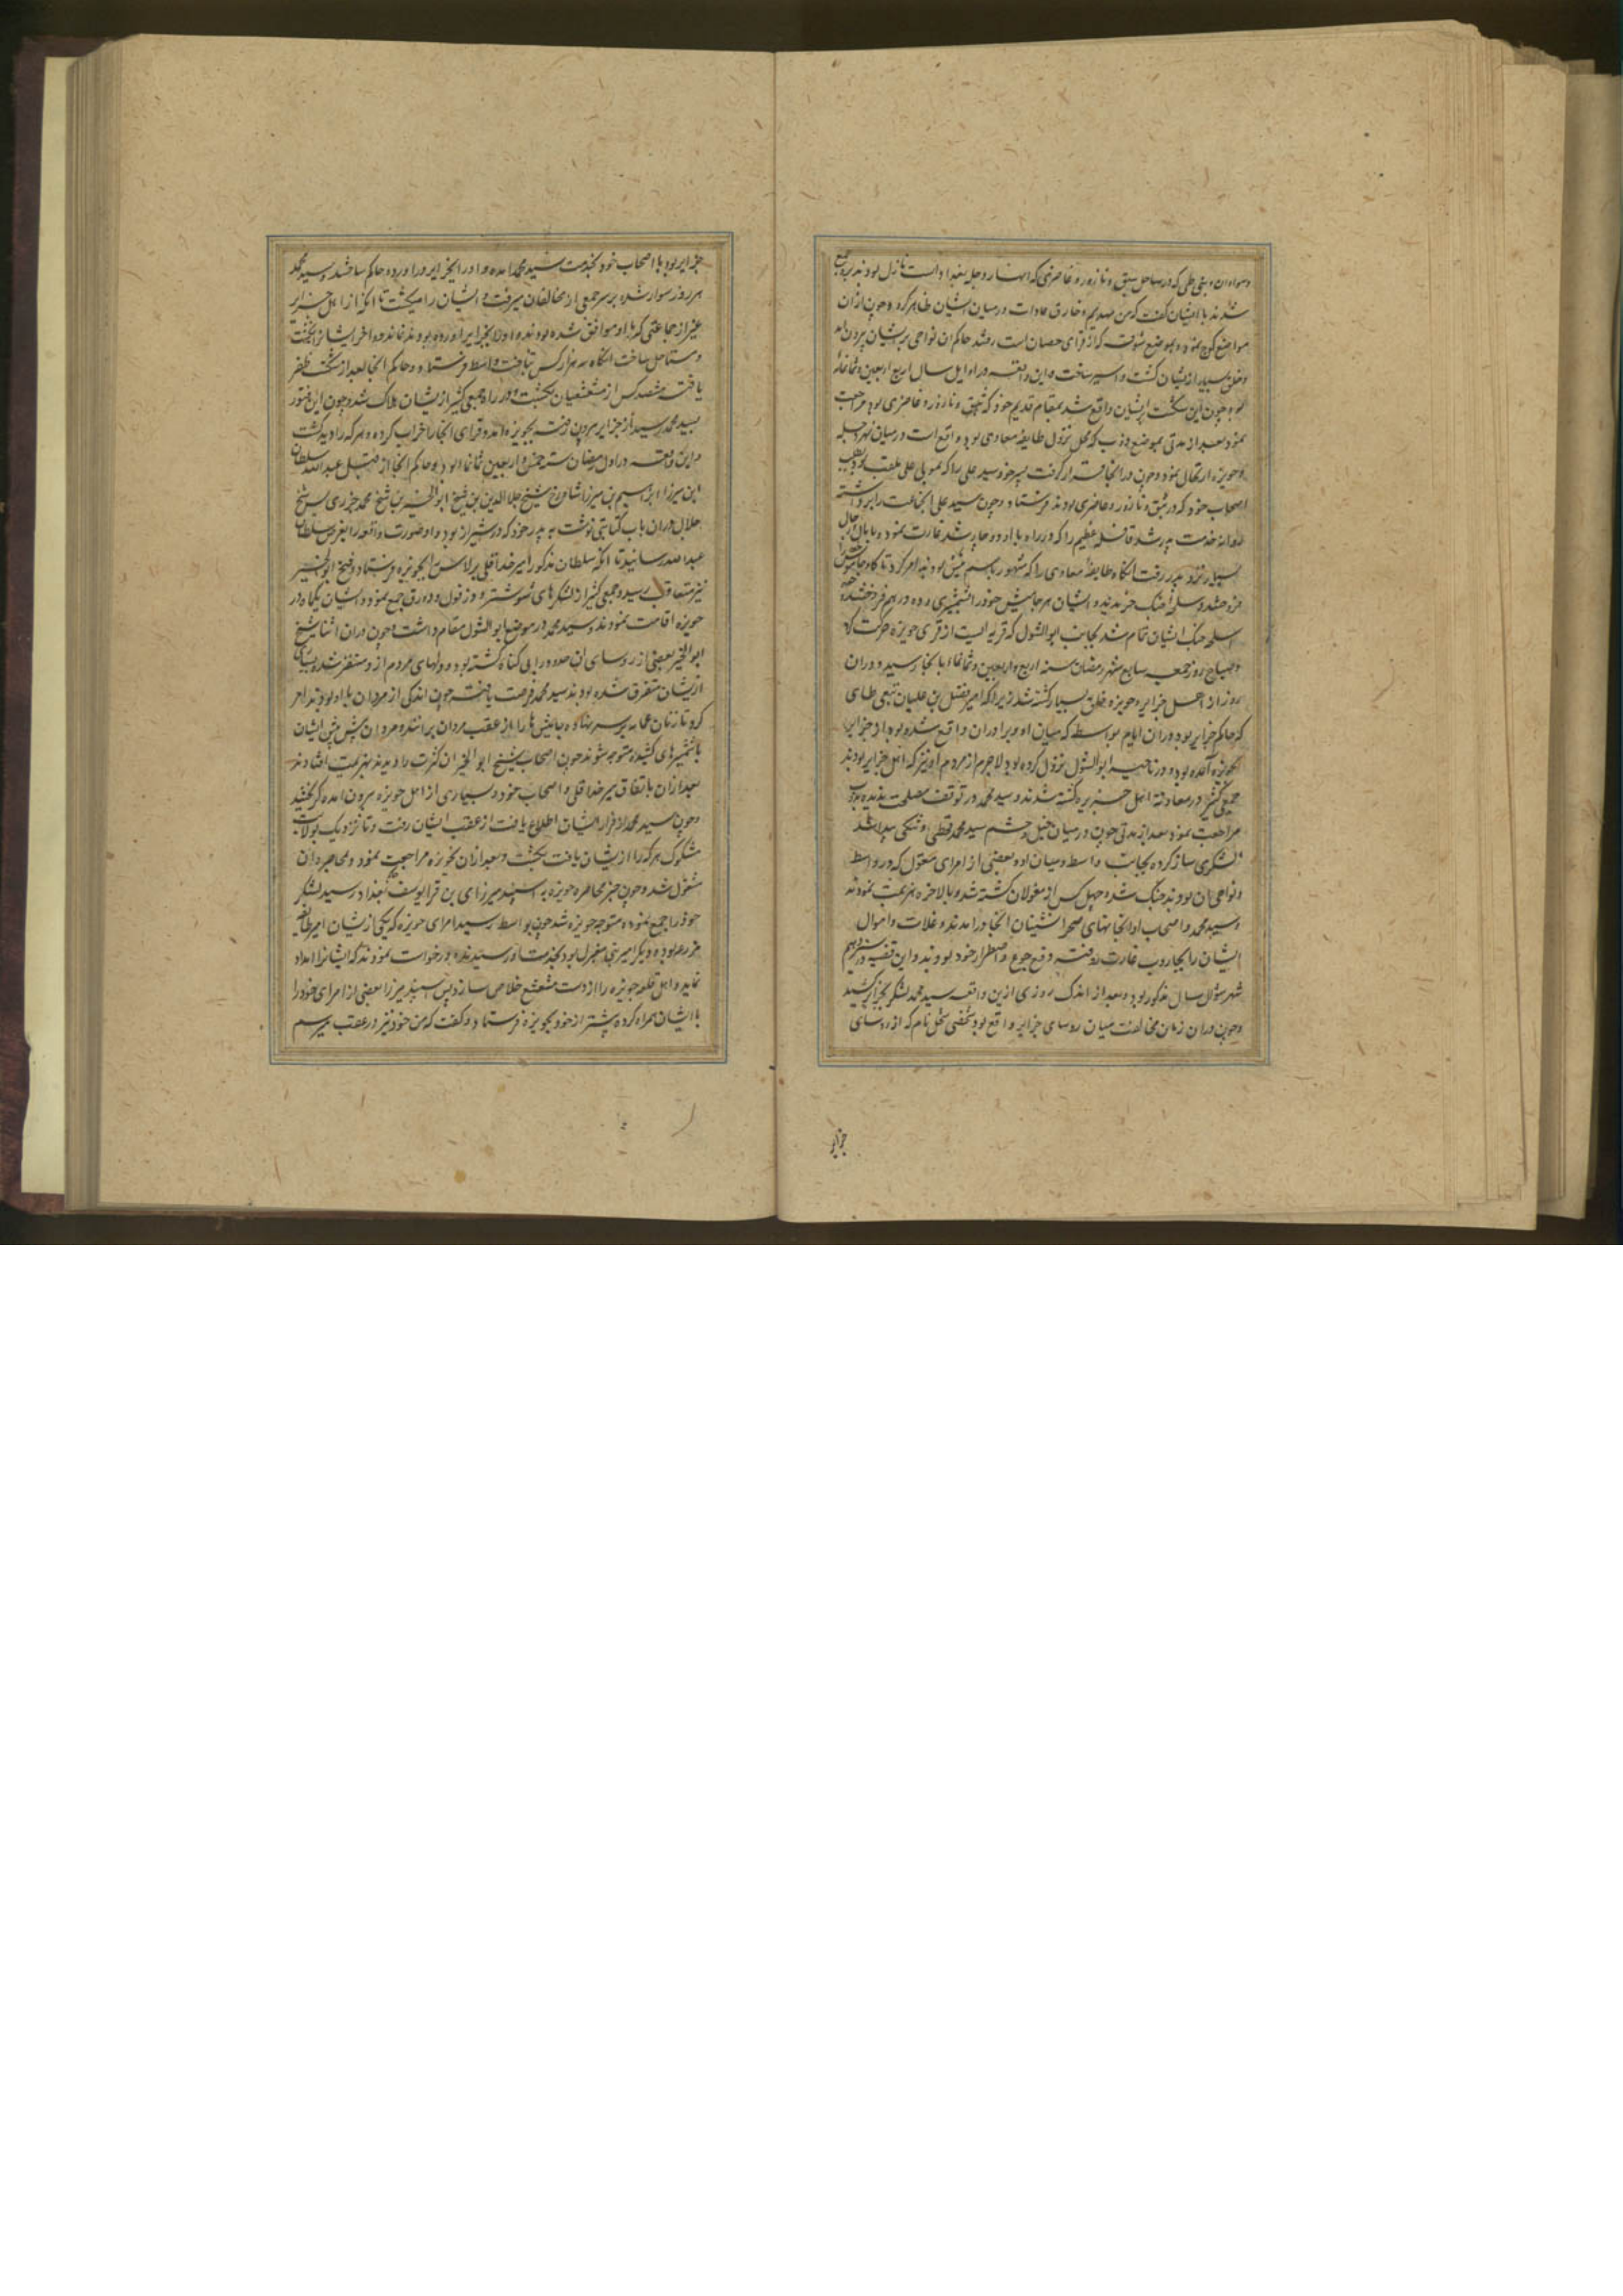 شدند با ایشان گفت که من مهدیم و خارق عادات در میان ایشان ظاهر کرد و چون ازان
مواضع کوچ نموده بموضع شوقه که از قرای حصان است رفتند حاکم ان نواحی بر ایشان بیرون امد
و خلق بسیار از یشان کشت و اسیر ساخت و این واقعه در اوایل سال اربع اربعین و ثمانمائه
بود چون این شکست بر ایشان واقع شد بمقام قدیم خود که و نازور و غاضری بود مراجعت
نمود بعد از مدتی بموضع دوب که محل نزول طایفه معادی بود و واقع است در میان نهر دجله
و حویزه ارتحال نمود و چون در انجا قرار گرفت پسر خود سید علی را که بمولی علی ملقب بود بطلب
اصحاب خود که در و نازور و غاضری بودند فرستاد و چون سید علی انجماعت را برداشته
روانه خدمت پدر شد قافله عظیم را که در راه با او دوچار شد غارت نموده با مال و رجال
بسیار نزد پدر رفت انگاه طایفه معادی را که مشهور باسم بودند امر کرد تا گاو جاموش را
فروختند و سلاح جنگ خریدند و ایشان هر جاموش خود را بشمشیری و ده درهم فروختند و چون
اسلحه جنگ ایشان تمام شد بجانب ابوالشول که قریه ایست از قرای حویزه حرکت کرد
و صباح روز جمعه سابع شهر رمضان سنه اربع و اربعین و ثمانمائه با انجا رسید و دران
روز از اهل جزایر و حویزه خلق بسیار کشته شد زیرا که امیر فضل بن علیان تبعی طائی
که حاکم جزایر بود دران ایام بواسطه که میان او و برادران واقع شده بود از جزایر
بحویزه آمده بود و در ناحیه ابوالشول نزول کرده بود لاجرم از مردم او نیز که اهل جزایر بودند
جمع کثیر در معاونه اهل حویزه کشته شدند و سید محمد در توقف مصلحت ندیده بدوب
مراجعت نمود بعد از مدتی چون در میان خیل و حشم سید محمد قحطی و تنگی پیدا شد
لشکری ساز کرده بجانب واسط و میان او و بعضی از امرای مغول که در واسط
و نواحی ان بودند جنگ شد و چهل کس از مغولان کشته شد و بالاخره هزیمت نمودند
و سید محمد و اصحاب او بخانهای صحرا نشینان انجا در امدند و غلات و اموال
ایشان را بجاروب غارت روفته دفع جوع و اضطرار خود نمودند و این قضیه در سیزدهم
شهر شوال سال مذکور بود و بعد از اندک روزی ازین واقعه سید محمد لشکر بجزایر کشید
و چون دران زمان مخالفت میان روسای جزایر واقع بود شخصی شحل نام که از روسای
جزایر
جزایر بود با اصحاب خود بخدمت سید محمد امده و او را بجزایر در اورده حاکم ساختند و سید محمد
هر روز سوار شده بر سر جمعی از مخالفان میرفت و ایشان را میکشت تا انکه از اهل جزایر
غیر از جماعتی که با او موافق شده بودند و او را بجزایر اورده بودند نماند و اخر ایشانرا بکشت
و مستاصل ساخت انگاه سه هزار کس بتاخت واسط فرستاد و حاکم انجا بعد از شکست ظفر
یافته هشصد کس از مشعشعیان بکشت و در راه جمعی کثیر از یشان هلاک شد و چون این فتور
بسید محمد رسید از جزایر بیرون رفته بحویزه امد و قرای انجا را خراب کرده و هر که را دید کشت
و این واقعه در اول رمضان سنه خمس و اربعین ثمانمائه بود و حاکم انجا از قبل عبد الله سلطان
ابن میرزا ابراهیم بن میرزا شاهرخ شیخ جلال الدین بن شیخ ابوالخیر بن شیخ محمد جزری بود شیخ
جلال دران باب کتابتی نوشت به پدر خود که در شیراز بود و او صورت واقعه را بعرض سلطان
عبدالله رسانید تا انکه سلطان مذکور امیر خداقلی برلاس را بحویزه فرستاد و شیخ ابوالخیر
نیز متعاقب رسید و جمعی کثیر از لشکرهای شوشتر و دزفول و دورق جمع نمود و ایشان یکماه در
حویزه اقامت نمودند و سید محمد در موضع ابوالشول مقام داشت و چون دران اثنا شیخ
ابوالخیر بعضی از روسای ان حدود را بی گناه کشته بود و دلهای مردم ازو متنفر شده بسیاری
از یشان متفرق شده بودند سید محمد فرصت یافته چون اندکی از مردان با او بودند امر
کرد تا زنان عمامه بر سر نهاده جامیشها را از عقب مردان برانند و مردان پیش پیش ایشان
با شمشیرهای کشیده متوجه شوند چون اصحاب شیخ ابوالخیر ان کثرت را دیدند بهزیمت افتادند
بعد ازان باتفاق میر خداقلی و اصحاب خود و بسیاری از اهل حویزه بیرون امده گریختند
و چون سید محمد از فرار ایشان اطلاع یافت از عقب ایشان رفت و تا نزدیک بولایت
مشکوک هر که را از یشان یافت بکشت و بعد ازان بحویزه مراجعت نمود و بمحاصره ان
مشغول شد و چون خبر محاصره حویزه به اسپند میرزای بن قرا یوسف ببغداد رسید لشکر
خود را جمع نموده متوجه حویزه شد چون بواسط رسید امرای حویزه که یکی از یشان امیر طایفه
خزرعه بوده و دیگر امیر بود بخدمت او رسیدند و درخواست نمودند که ایشانرا امداد
نماید و اهل قلعه حویزه را از دست مشعشع خلاص سازد پس اسپند میرزا بعضی از امرای خود را
با ایشان همراه کرده پیشتر از خود بحویزه فرستاد و گفت که من خود نیز در عقب میرسم